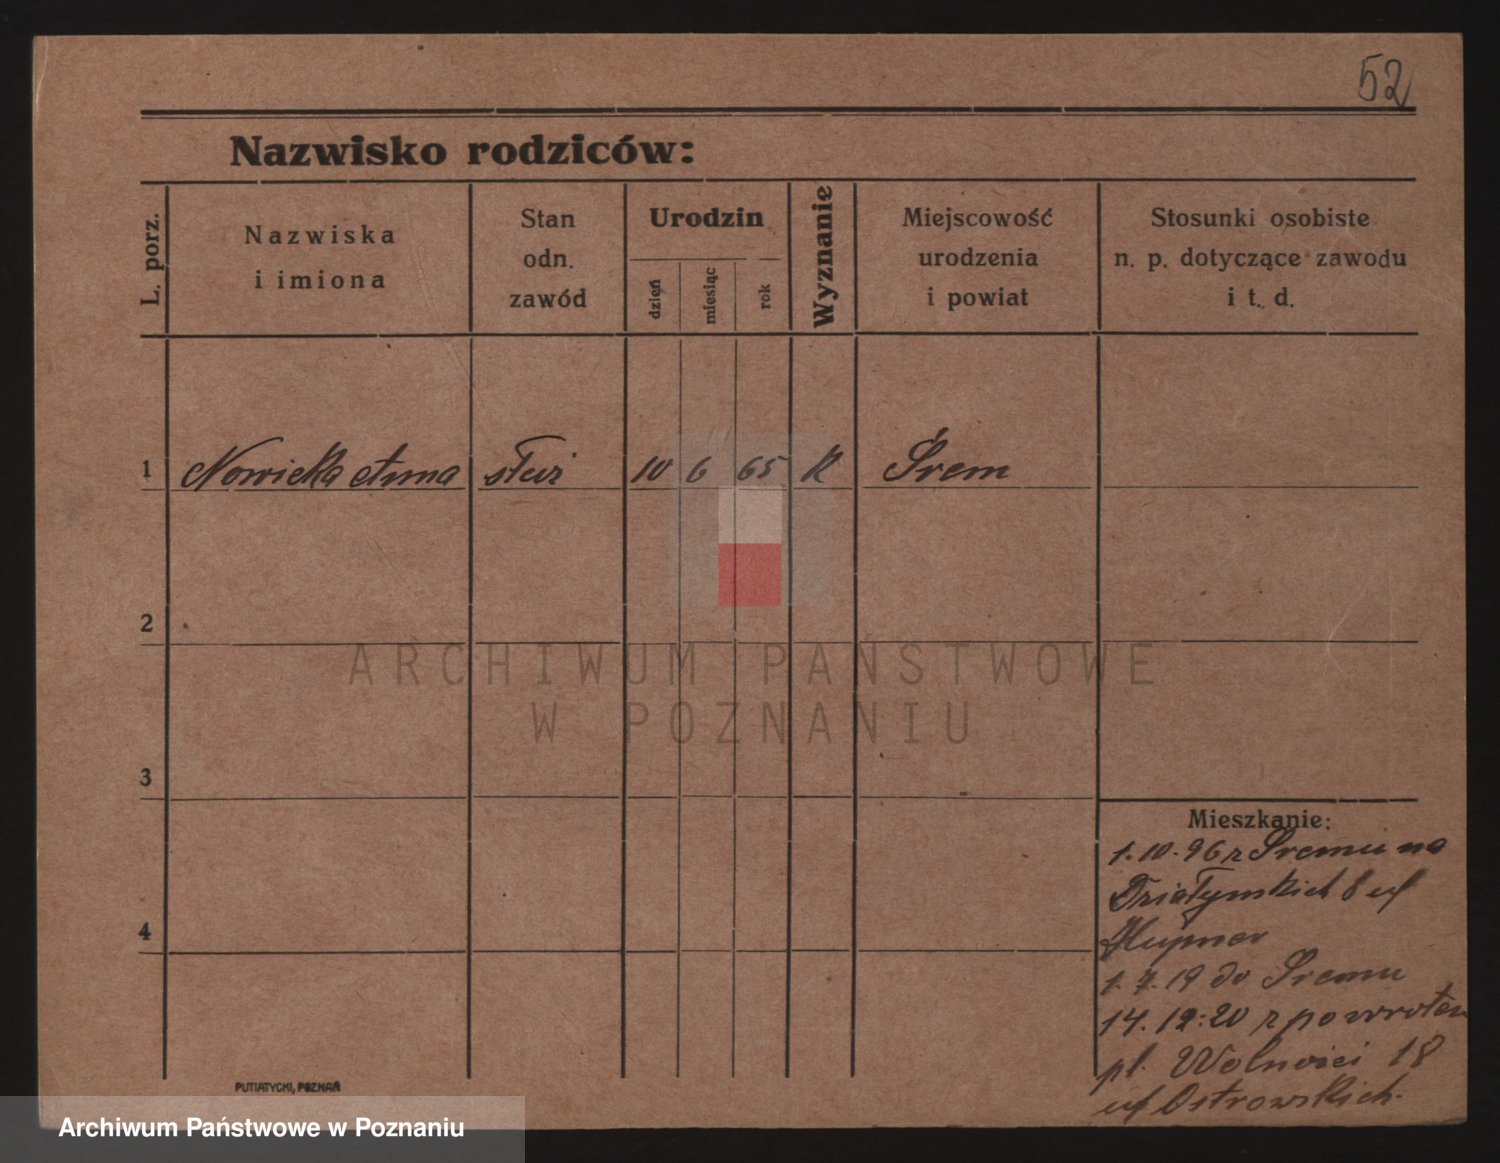 52
Nazwisko rodziców:
L. porz.
Nazwiska
i imiona
Stan
odn.
zawód
Urodzin
dzień
miesiąc
rok
Wyznanie
Miejscowość
urodzenia
i powiat
Stosunki osobiste
n. p. dotyczące zawodu
i t. d.
1 Nowicka Anna służ 10 6 65 K Śrem
2
ARCHIWUM PAŃSTWOWE
W POZNANIU
3
Mieszkanie:
1.10.96 z Śremu na
Działyńskich 8 u/
4
1.7.19 do Śremu
14.12.20 z powrotem
pl. Wolności 18
u/ Ostrowskich.
PUTIATYCKI, POZNAŃ
Archiwum Państwowe w Poznaniu